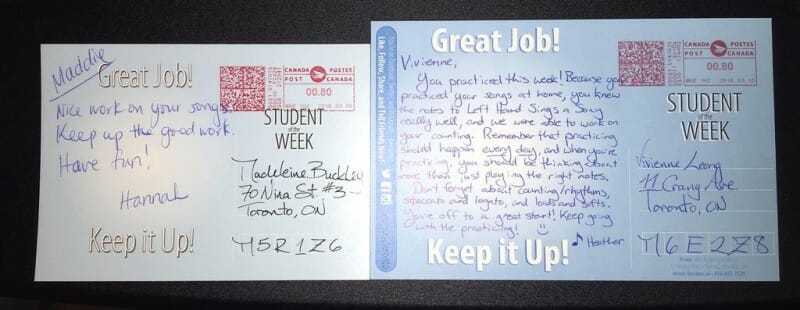 Maddie
Great Job!
Nice work on your songs.
Keep up the good work.
Have fun!
Hannah
Keep it Up!
CANADA POSTES
POST CANADA
00.80
STUDENT
of the
WEEK
Madeleine Buckley
70 Nina St. #3
Toronto, ON
M5R 1Z6
Great Job!
Like, Follow, Share, and Tell Friends Now!
Vivienne,
You practiced this week! Because you
practiced your songs at home, you knew
the notes to Left Hand Sings a Song
really well, and we were able to work on
your counting. Remember that practicing
should happen every day, and when you're
practicing, you should be thinking about
more than just playing the right notes.
Don't forget about counting/rhythms,
staccato and legato, and louds and softs.
You're off to a great start! Keep going
with the practicing!
Heather
Keep it Up!
CANADA POSTES
POST CANADA
00.80
STUDENT
of the
WEEK
Vivienne Leong
11 Crang Ave
Toronto, ON
M6E2Z8